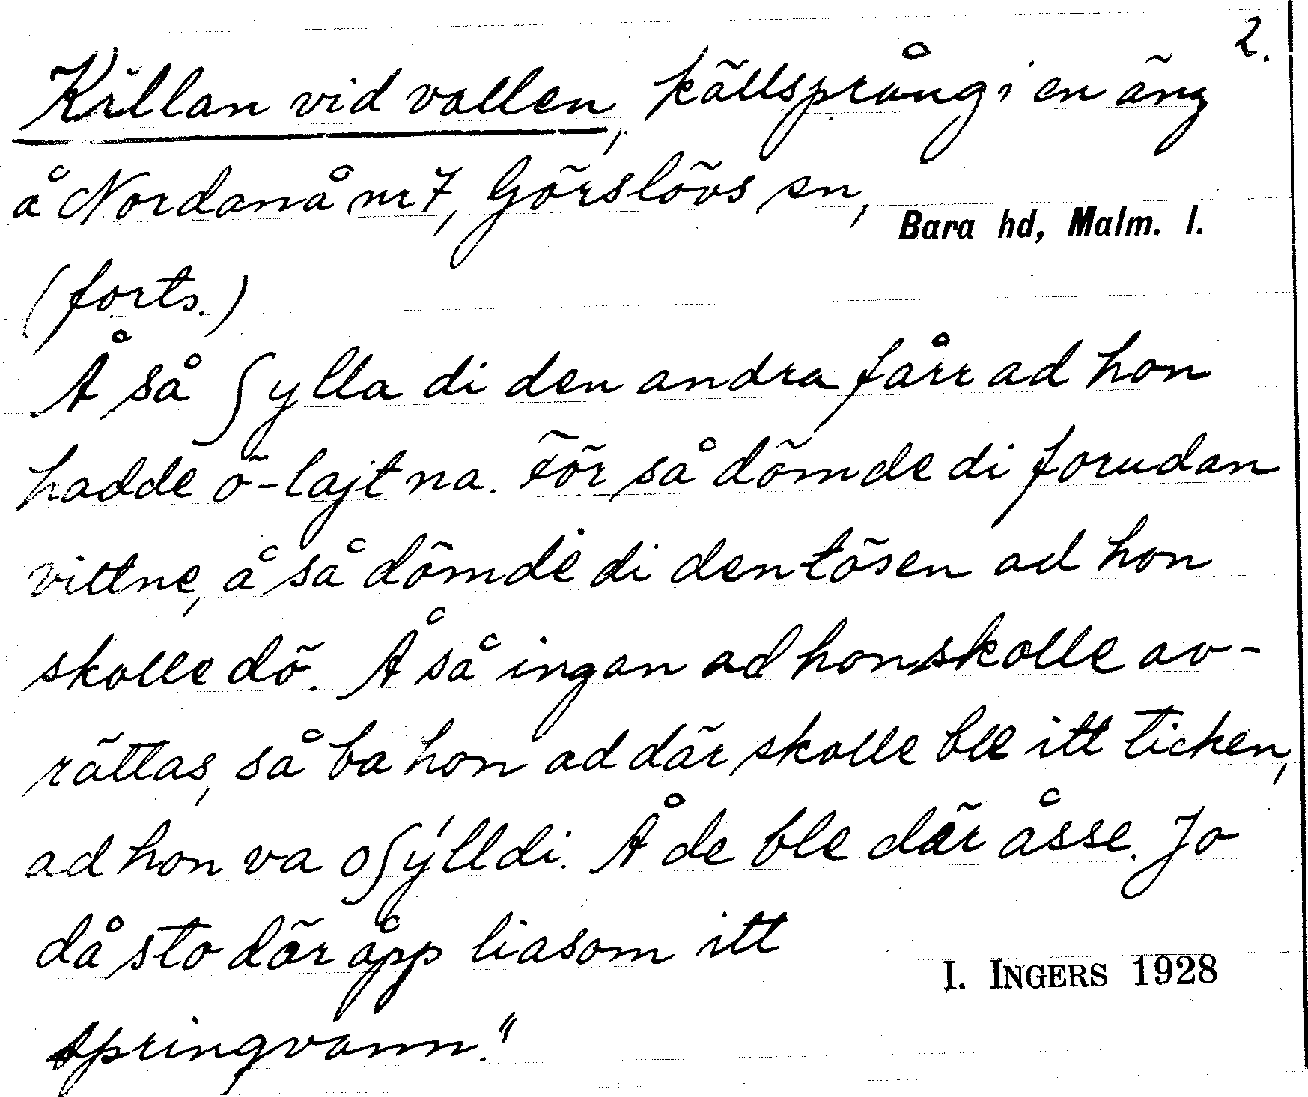 2.
Killan vid vallen, källsprång i en äng
å Nordanå nr 7, Görslövs sn,
Bara hd, Malm. l.
(forts.)
Å så ʃylla di den andra fårr ad hon
hadde ö-lajt na. För så dömde di forudan
vittne, å så dömde di den tösen ad hon
skolle dö. Å så ingan ad hon skolle av-
rättas, så ba hon ad där skolle ble itt ticken,
ad hon va oʃýlldi. Å de ble där åsse. Jo
då sto där åpp liasom itt
springvann."
I. INGERS 1928